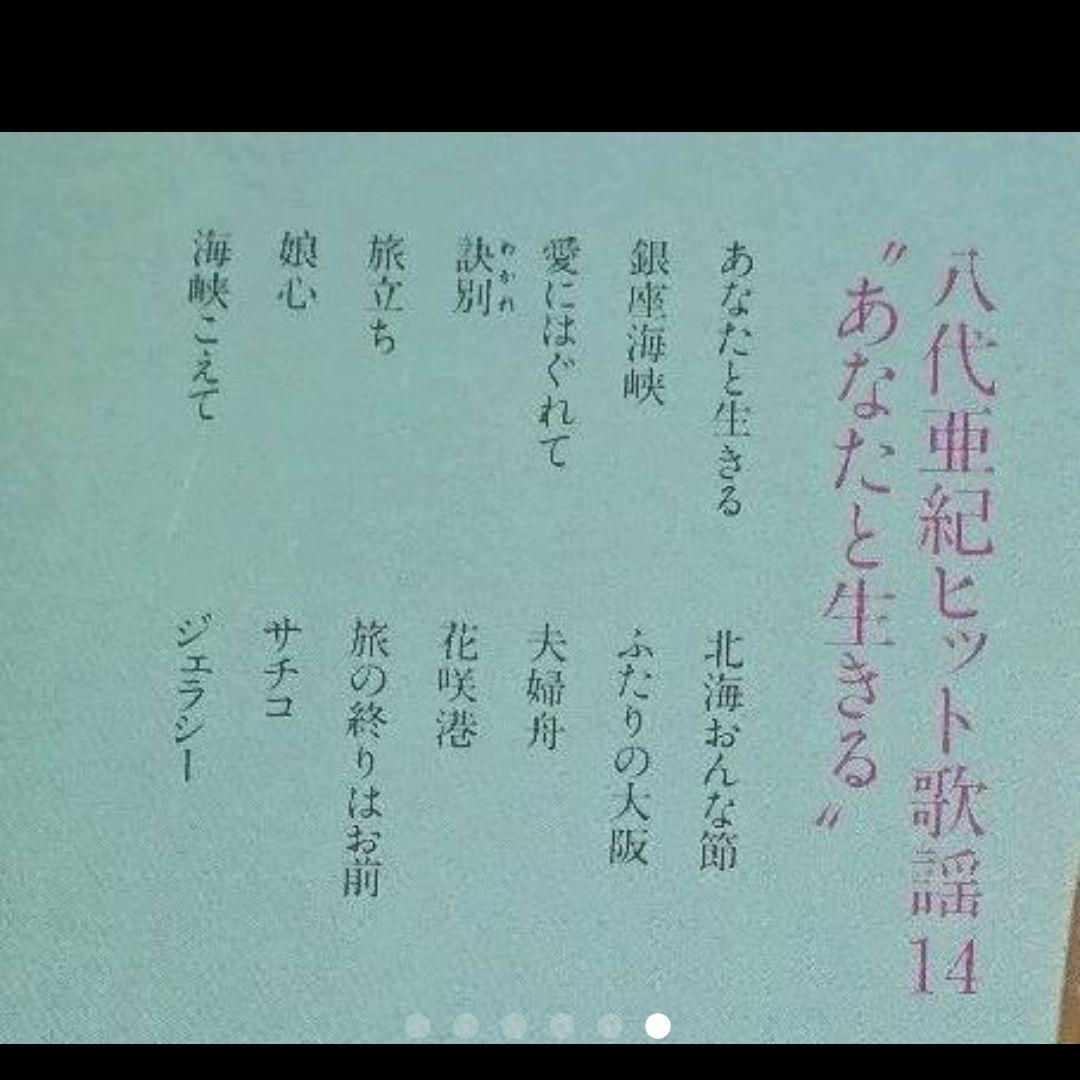 八代亜紀ヒット歌謡14
〝あなたと生きる〟
あなたと生きる
銀座海峡
愛にはぐれて
訣別
わかれ
旅立ち
娘心
海峡こえて
北海おんな節
ふたりの大阪
夫婦舟
花咲港
旅の終りはお前
サチコ
ジェラシー